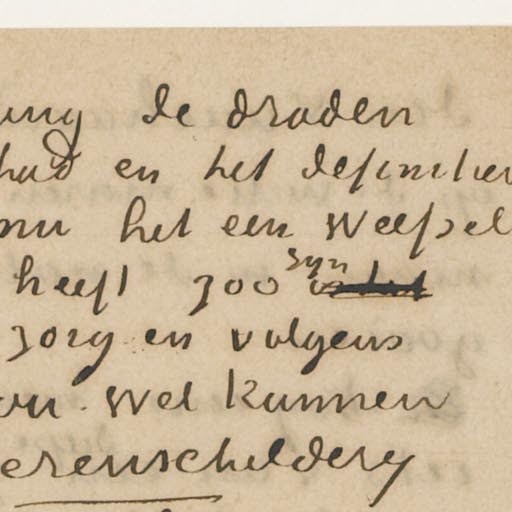 ung de draden
had en het definitiev
nu het een weefsel
heeft zoo zyn
zorg en volgens
ou wel kunnen
erenschildery